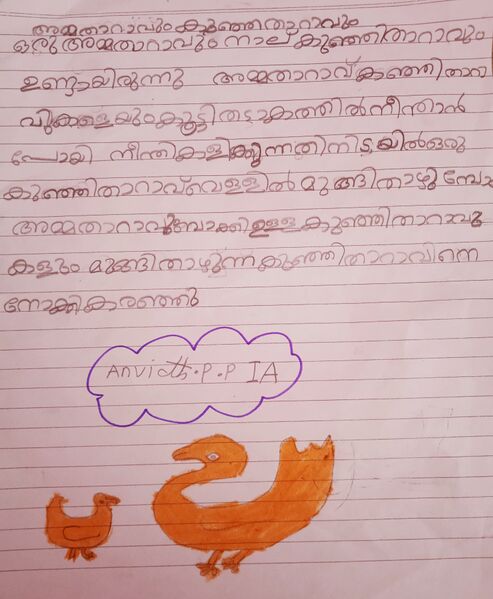 അമ്മതാറാവും കുഞ്ഞിതാറാവും
ഒരു അമ്മതാറാവും നാല് കുഞ്ഞിതാറാവും
ഉണ്ടായിരുന്നു അമ്മതാറാവ് കുഞ്ഞിതാറാ
വുകളെയുംകൂട്ടി തടാകത്തിൽ നീന്താൻ
പോയി നീന്തികളിക്കുന്നതിനിടയിൽ ഒരു
കുഞ്ഞിതാറാവ് വെള്ളിൽ മുങ്ങിതാഴുമ്പോ
അമ്മതാറാവുംബാക്കി ഉള്ള കുഞ്ഞിതാറാവു
കളും മുങ്ങിതാഴുന്ന കുഞ്ഞിതാറാവിനെ
നോക്കികരഞ്ഞു
Anvidh.P.P IA